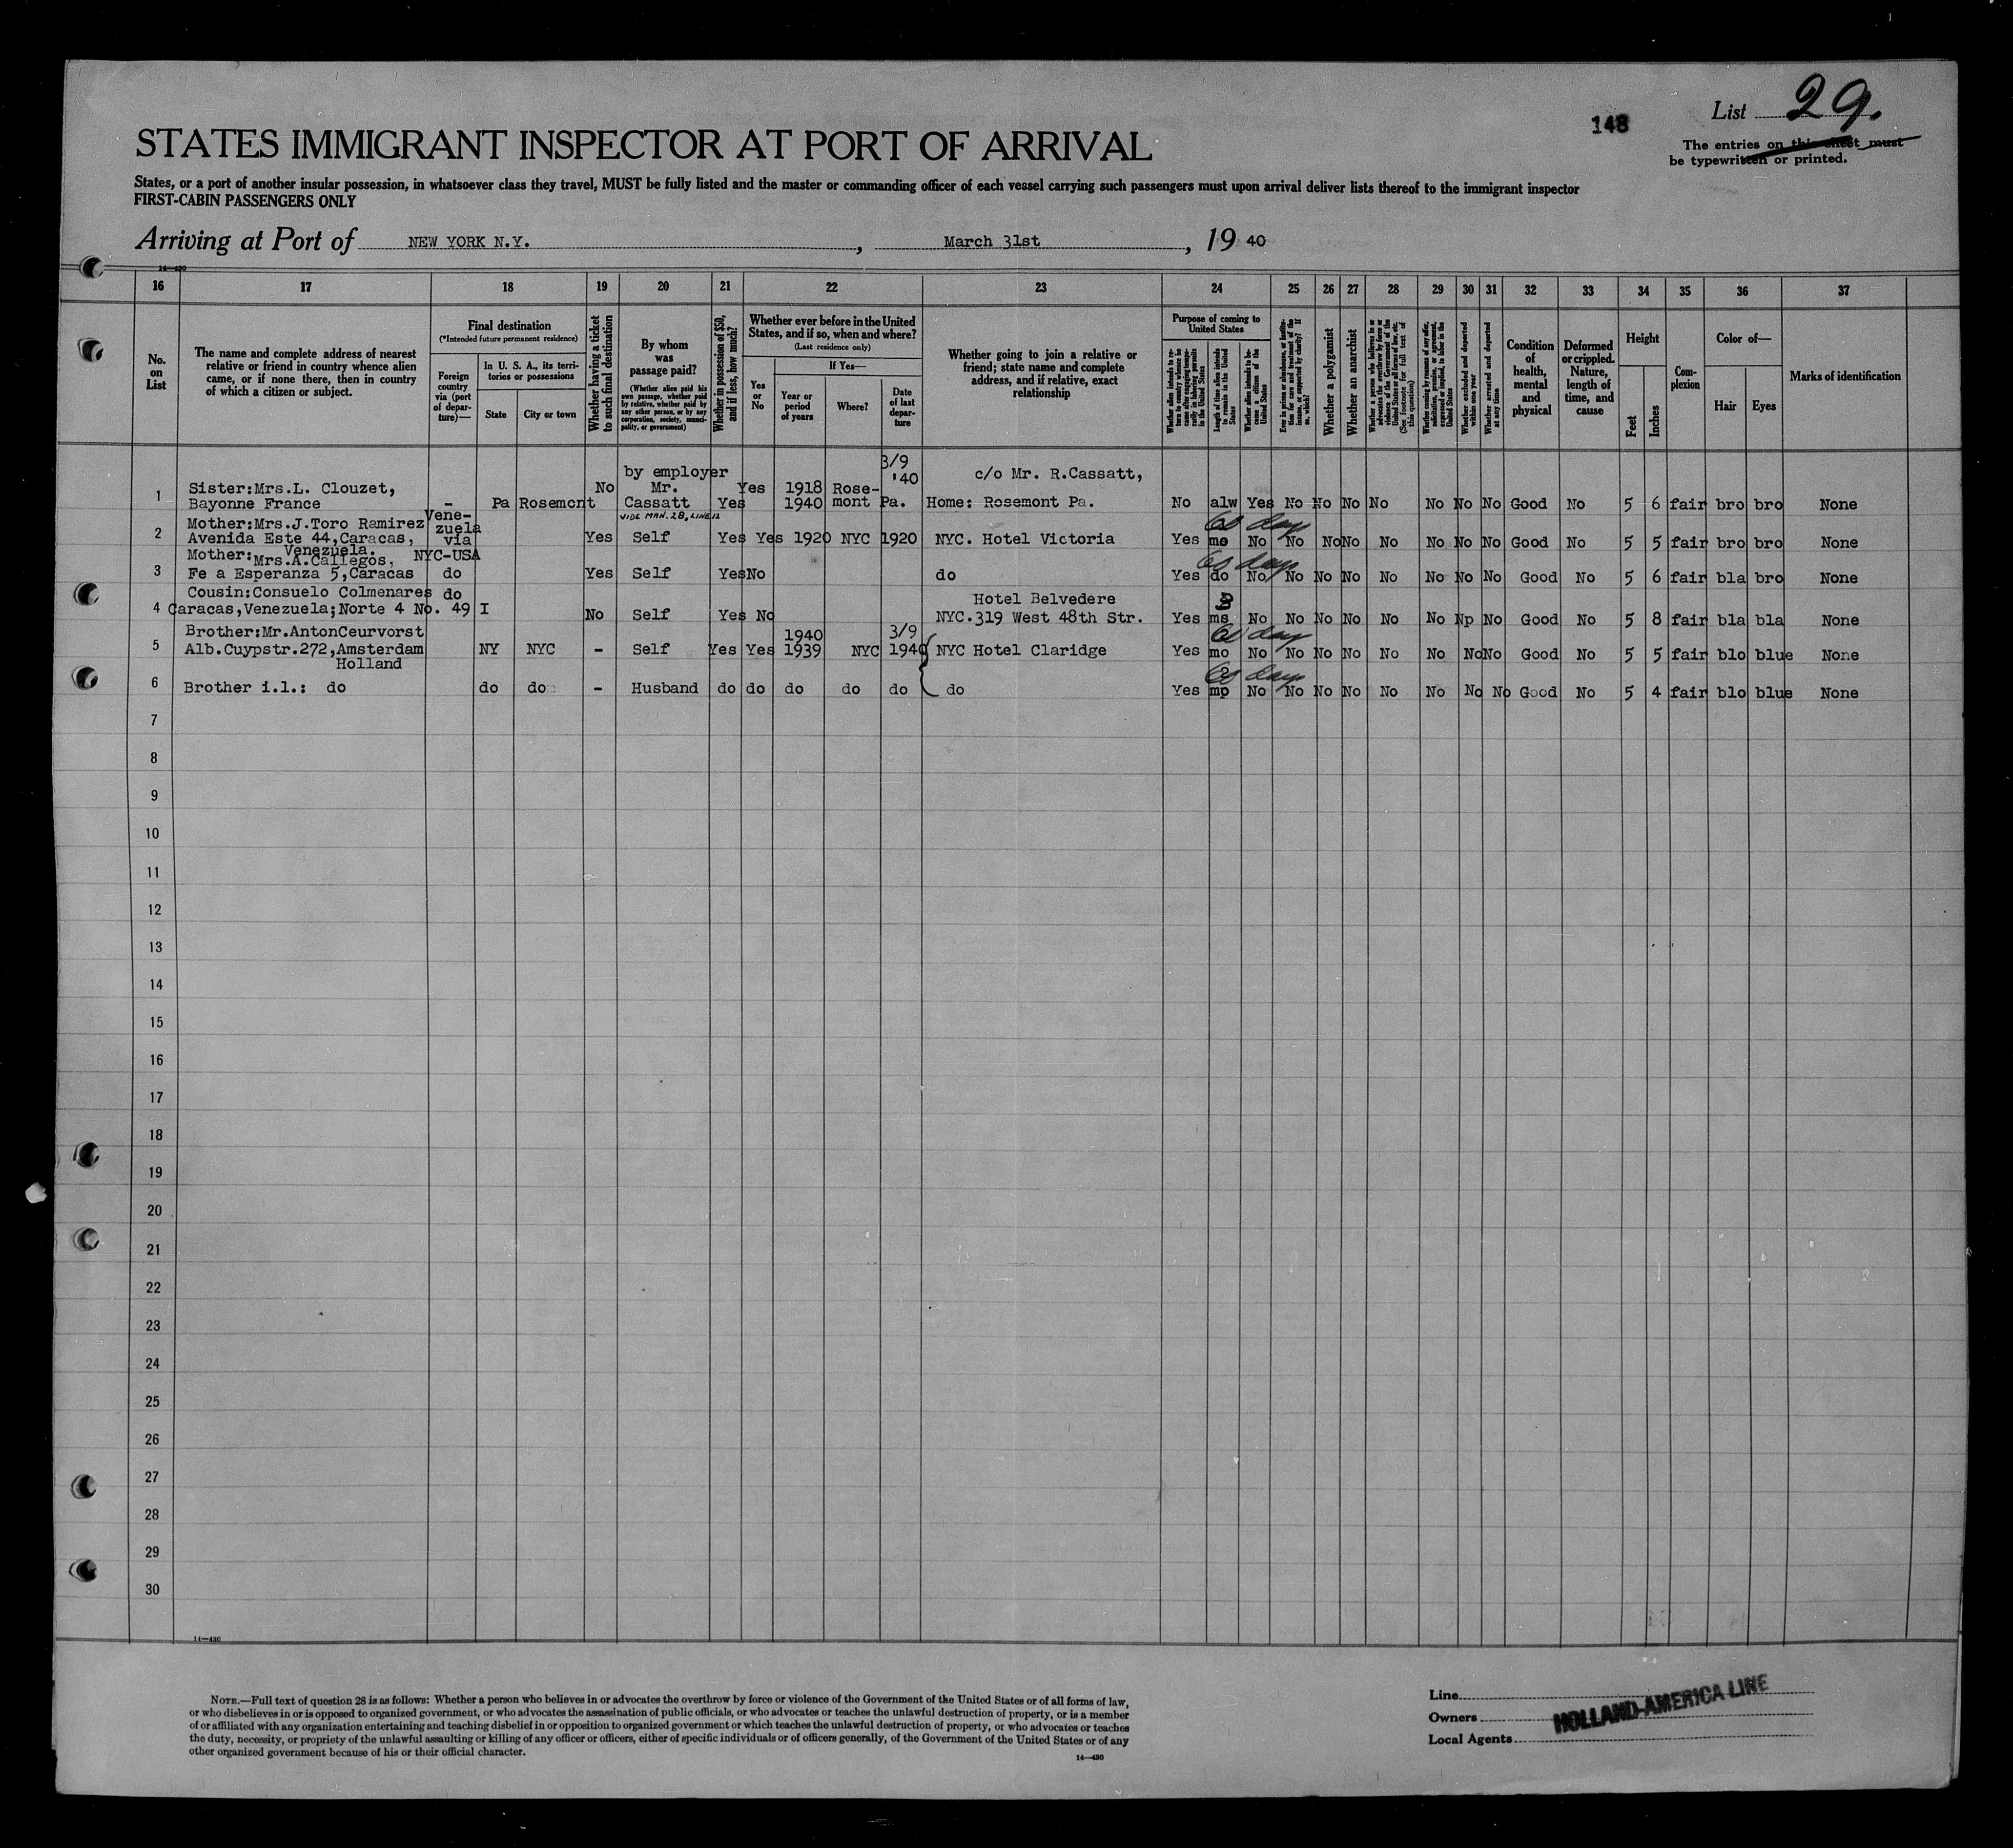 148
List 29.
The entries on this sheet must
be typewritten or printed.
STATES IMMIGRANT INSPECTOR AT PORT OF ARRIVAL
States, or a port of another insular possession, in whatsoever class they travel, MUST be fully listed and the master or commanding officer of each vessel carrying such passengers must upon arrival deliver lists thereof to the immigrant inspector
FIRST-CABIN PASSENGERS ONLY
Arriving at Port of NEW YORK N.Y. , March 31st , 19 40
14—430
16 17 18 19 20 21 22 23 24 25 26 27 28 29 30 31 32 33 34 35 36 37
No. on List
The name and complete address of nearest relative or friend in country whence alien came, or if none there, then in country of which a citizen or subject.
Final destination
(*Intended future permanent residence)
Foreign country via (port of departure)—
In U. S. A., its territories or possessions
State
City or town
Whether having a ticket to such final destination
By whom was passage paid?
(Whether alien paid his own passage, whether paid by relative, whether paid by any other person, or by any corporation, society, municipality, or government)
Whether in possession of $50, and if less, how much?
Whether ever before in the United States, and if so, when and where?
(Last residence only)
Yes or No
If Yes—
Year or period of years
Where?
Date of last departure
Whether going to join a relative or friend; state name and complete address, and if relative, exact relationship
Purpose of coming to United States
Length of time alien intends to remain in the United States
Whether alien intends to become a citizen of the United States
Whether a polygamist
Whether an anarchist
Whether excluded and deported within one year
Whether arrested and deported at any time
Condition of health, mental and physical
Deformed or crippled. Nature, length of time, and cause
Height
Feet
Inches
Complexion
Color of—
Hair
Eyes
Marks of identification
by employer 3/9 c/o Mr. R.Cassatt,
Sister:Mrs.L. Clouzet, No Mr. Yes 1918 Rose- '40
1 Bayonne France – Pa Rosemont Cassatt Yes 1940 mont Pa. Home: Rosemont Pa. No alw Yes No No No No No No No Good No 5 6 fair bro bro None
VIDE MAN. 28, LINE 12
Mother:Mrs.J.Toro Ramirez Vene-
zuela 60 days
2 Avenida Este 44,Caracas, via Yes Self Yes Yes 1920 NYC 1920 NYC. Hotel Victoria Yes mo No No No No No No No No Good No 5 5 fair bro bro None
Venezuela.
Mother:Mrs.A.Callegos, NYC-USA 60 days
3 Fe a Esperanza 5,Caracas do Yes Self Yes No do Yes do No No No No No No No No Good No 5 6 fair bla bro None
Cousin:Consuelo Colmenares do Hotel Belvedere 3
4 Caracas,Venezuela;Norte 4 No. 49 I No Self Yes No NYC.319 West 48th Str. Yes ms No No No No No No Np No Good No 5 8 fair bla bla None
Brother:Mr.AntonCeurvorst 1940 3/9 60 days
5 Alb.Cuypstr.272,Amsterdam NY NYC – Self Yes Yes 1939 NYC 1940 NYC Hotel Claridge Yes mo No No No No No No No No Good No 5 5 fair blo blue None
Holland 60 days
6 Brother i.l.: do do do – Husband do do do do do do Yes mp No No No No No No No No Good No 5 4 fair blo blue None
7
8
9
10
11
12
13
14
15
16
17
18
19
20
21
22
23
24
25
26
27
28
29
30
14—430
NOTE.—Full text of question 28 is as follows: Whether a person who believes in or advocates the overthrow by force or violence of the Government of the United States or of all forms of law,
or who disbelieves in or is opposed to organized government, or who advocates the assassination of public officials, or who advocates or teaches the unlawful destruction of property, or is a member
of or affiliated with any organization entertaining and teaching disbelief in or opposition to organized government or which teaches the unlawful destruction of property, or who advocates or teaches
the duty, necessity, or propriety of the unlawful assaulting or killing of any officer or officers, either of specific individuals or of officers generally, of the Government of the United States or of any
other organized government because of his or their official character.
14—430
Line
Owners
Local Agents
HOLLAND-AMERICA LINE